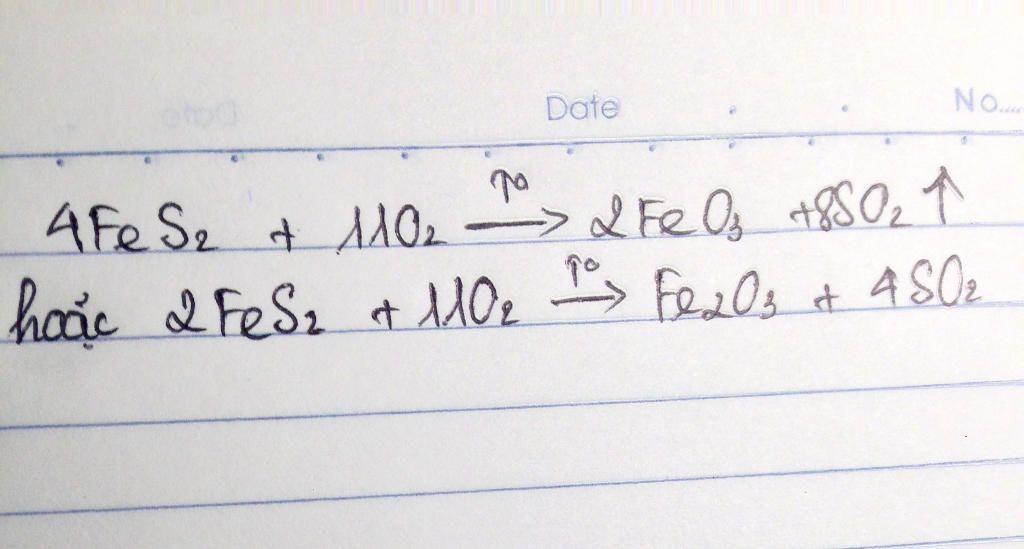 Date No....
4FeS₂ + 11O₂ —t°→ 2FeO₃ +8SO₂ ↑
hoặc 2FeS₂ + 11O₂ —t°→ Fe₂O₃ + 4SO₂